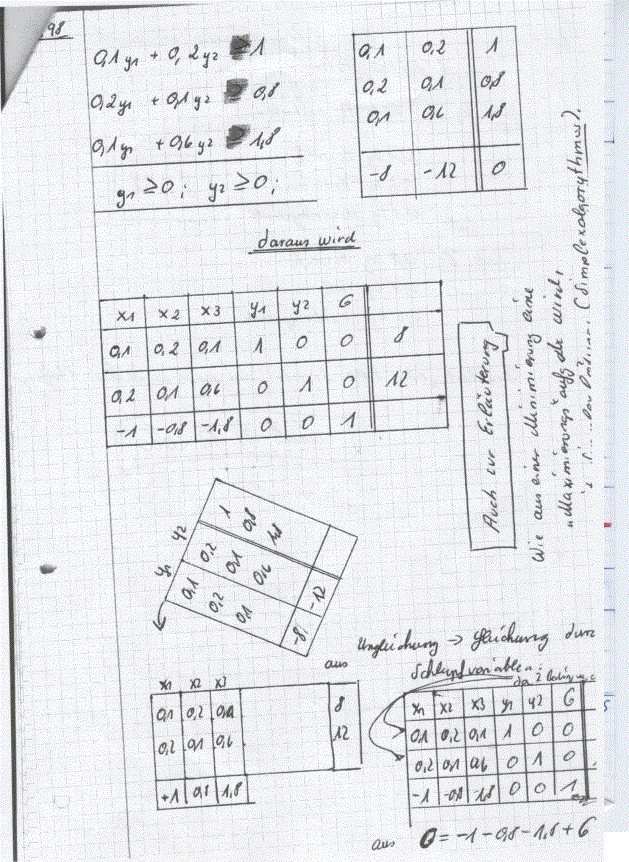 98
0,1y1 + 0,2y2 ≥ 1
0,2y1 + 0,1y2 ≥ 0,8
0,1y1 + 0,6y2 ≥ 1,8
y1 ≥ 0; y2 ≥ 0;
0,1 0,2 1
0,2 0,1 0,8
0,1 0,6 1,8
-8 -12 0
daraus wird
x1 x2 x3 y1 y2 G
0,1 0,2 0,1 1 0 0 8
0,2 0,1 0,6 0 1 0 12
-1 -0,8 -1,8 0 0 1
Auch zur Erläuterung
Wie aus einer Minimierung eine
Maximierungsaufgabe wird,
(Simplexalgorythmus).
y2 1 0,8 1,8
y1 0,2 0,1 0,6 -12
0,1 0,2 0,1 -8
aus
x1 x2 x3
0,1 0,2 0,1 8
0,2 0,1 0,6 12
+1 0,8 1,8
Ungleichung → Gleichung durc
Schlupfvariablen:
da 2
x1 x2 x3 y1 y2 G
0,1 0,2 0,1 1 0 0
0,2 0,1 0,6 0 1 0
-1 -0,8 -1,8 0 0 1
aus 0 = -1 - 0,8 - 1,8 + G